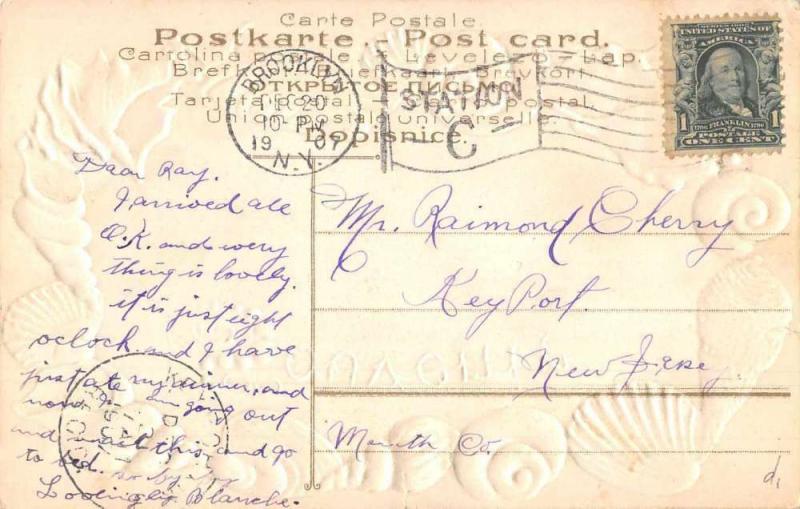 Carte Postale.
Postkarte - Post card.
Cartolina postale - Levelezo-Lap.
Brefkort - Briefkaart - Brevkort.
ОТКРЫТОЕ ПИСЬМО
Tarjeta postal - postal.
Union postale universelle.
Dopisnice.
BROOKLYN
20
10-PM
19 07
N.Y.
STATION
C
SERIES 1902
UNITED STATES OF
AMERICA
1 FRANKLIN 1
POSTAGE
ONE CENT
Dear Ray.
I arrived ale
O.K. and wery
thing is lovely.
it is just eight
oclock and I have
just ate my dinner, and
now am going out
and mail this, and go
to bed. so by-by
Lovingly Blanche.
Mr. Raimond Cherry
KeyPort.
New Jersey
Monuth Co.
d,